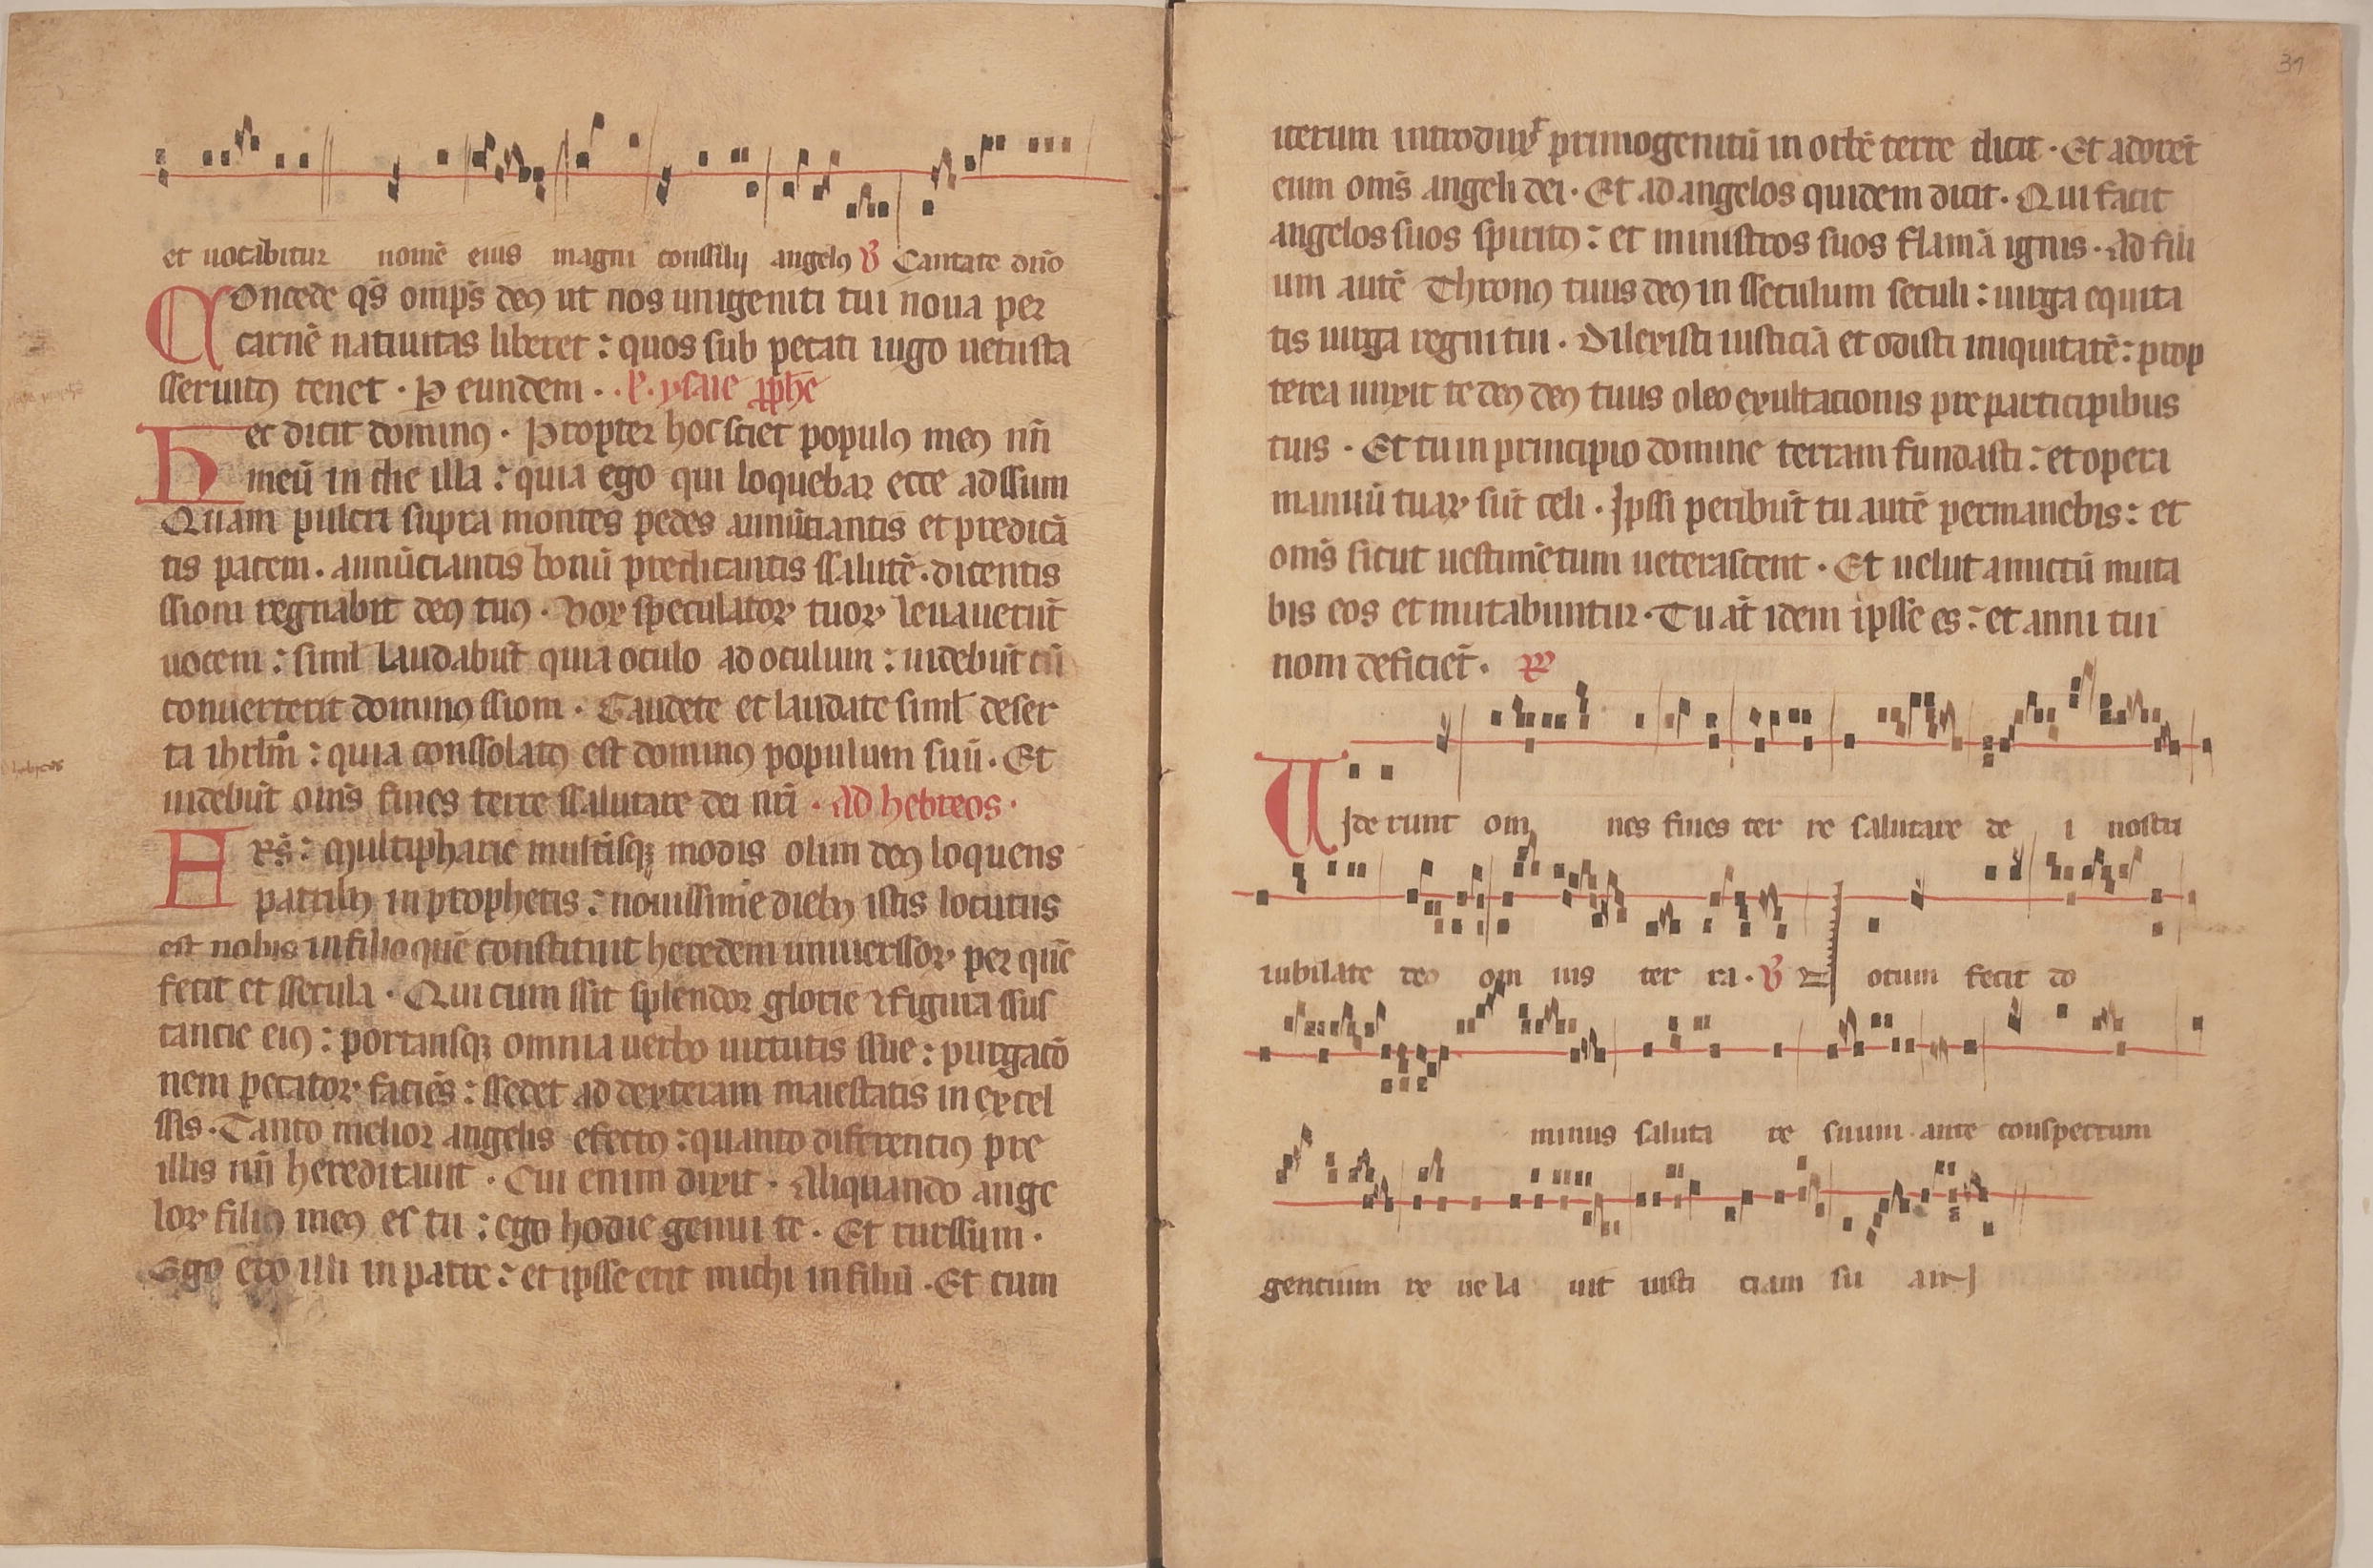 et uocabitur nomē eius magni conssilij angelꝯ ℣ Cantate dn̄o
Concede qs̄ omp̄s deꝯ ut nos unigeniti tui noua per
carnē natiuitas liberet : quos sub pecati iugo uetusta
sseruitꝯ tenet · P eundem · ysaie ꝓphe
Hec dicit dominꝯ · Propter hoc sciet populꝯ meꝯ nn̄
meū in die illa : quia ego qui loquebar ecce adssum
Quam pulcri supra montes pedes annūtiantis et predicā
tis pacem . annūciantis bonū predicantis ssalutē . dicentis
ssion regnabit deꝯ tuꝯ . Vox speculatoꝝ tuoꝝ leuauerūt
uocem : siml̄ laudabūt quia oculo ad oculum : uidebūt cū
conuerterit dominꝯ ssion · Gaudete et laudate siml̄ deser
ta ihrlm̄ : quia conssolatꝯ est dominꝯ populum suū . Et
uidebūt om̄s fines terre ssalutare dei nr̄i · Ad hebreos ·
Frs̄ : Multipharie multisqꝫ modis olim deꝯ loquens
patribꝯ in prophetis : nouissime diebꝯ istis locutus
est nobis in filio quē constituit heredem uniuerssoꝝ per quē
fecit et ssecula · Qui cum ssit splendor glorie ⁊ figura ssus
tancie eiꝯ : portansqꝫ omnia uerbo uirtutis ssue : purgacō
nem pecatoꝝ faciēs : ssedet ad dexteram maiestatis in excel
ssis . Tanto melior angelis efectꝯ : quanto diferenciꝯ pre
illis nn̄ hereditauit . Cui enim dixit . Aliquando ange
loꝝ filiꝯ meꝯ es tu : ego hodie genui te . Et rurssum ·
Ego ero illi in patre : et ipsse erit michi in filiū . Et cum
31
iterum introdux͛ primogenitū in orbē terre dicit . Et adorēt
eum om̄s angeli dei . Et ad angelos quidem dicit . Qui facit
angelos suos spiritꝯ : et ministros suos flamā ignis . Ad fili
um autē Thronꝯ tuus deꝯ in sseculum seculi : uirga equita
tis uirga regni tui . Dilexisti iusticiā et odisti iniquitatē : prop
terea unxit te deꝯ deꝯ tuus oleo exultacionis pre participibus
tuis . Et tu in principio domine terram fundasti : et opera
manuū tuaꝝ sūt celi . Ipssi peribūt tu autē permanebis : et
om̄s sicut uestimētum ueterascent . Et uelut amictū muta
bis eos et mutabuntur . Tu at̄ idem ipsse es : et anni tui
nom deficiēt .
VIde runt om nes fines ter re salutare de i nostri
iubilate deo om nis ter ra . ℣ Notum fecit do
minus saluta re suum ante conspectum
gentium re ue la uit iusti ciam su am